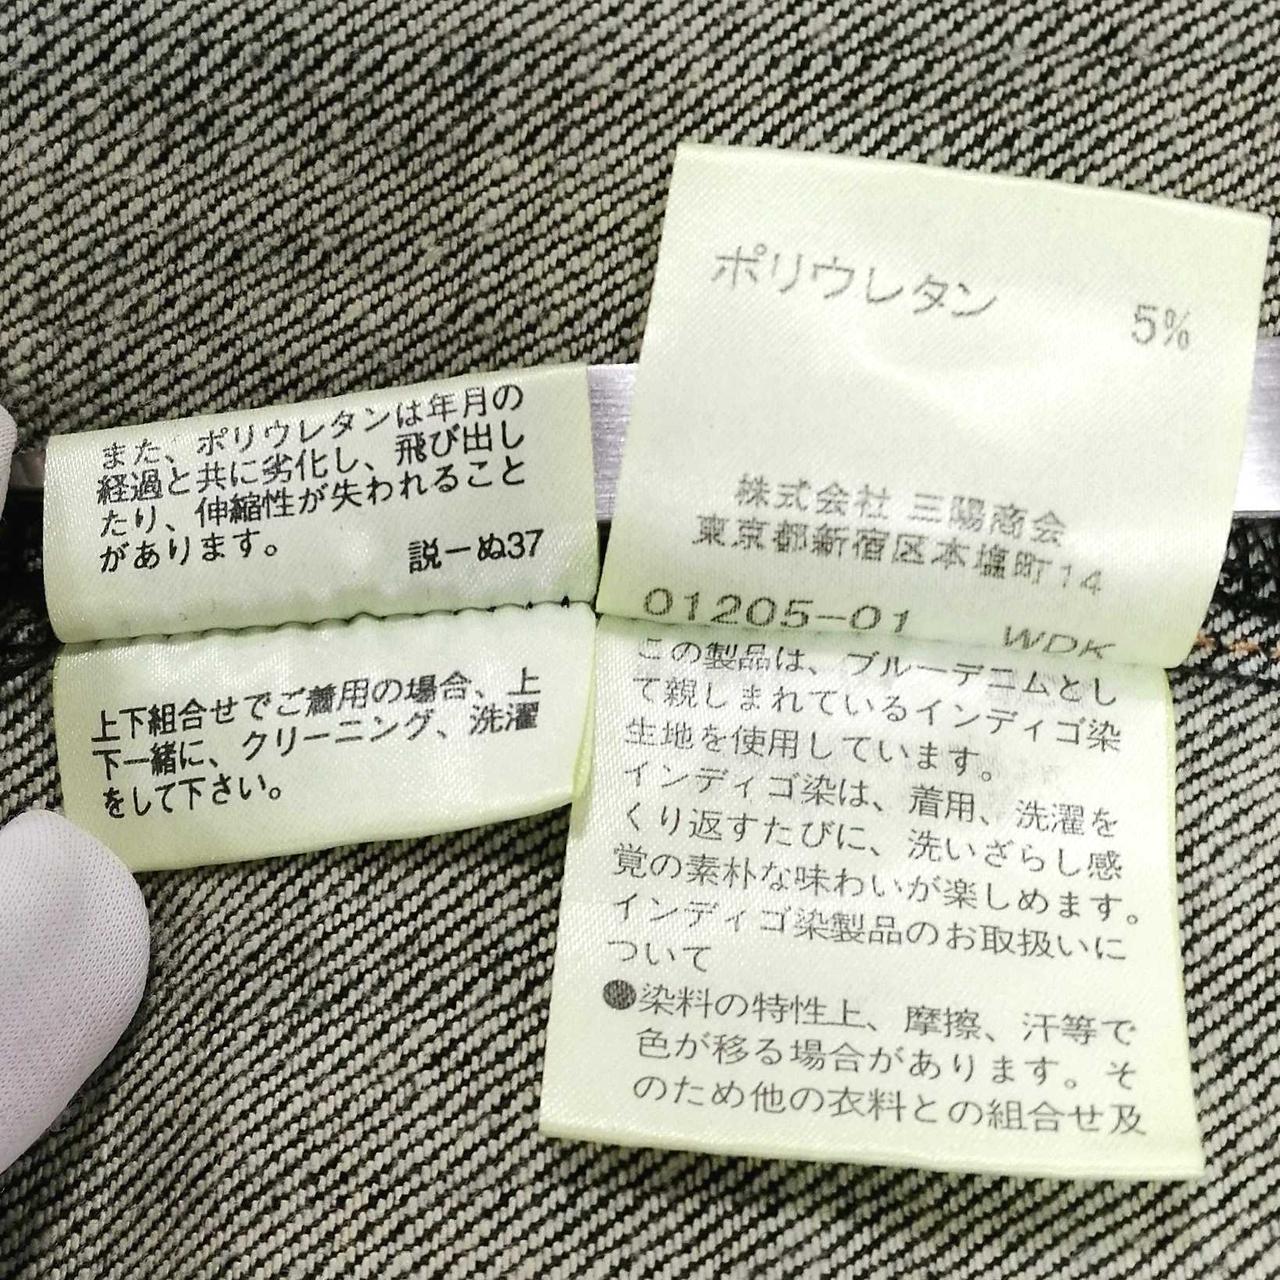 また、ポリウレタンは年月の
経過と共に劣化し、飛び出し
たり、伸縮性が失われること
があります。
説ーぬ37
上下組合せでご着用の場合、上
下一緒に、クリーニング、洗濯
をして下さい。
ポリウレタン 5%
株式会社 三陽商会
東京都新宿区本塩町14
01205-01 WDK
この製品は、ブルーデニムとし
て親しまれているインディゴ染
生地を使用しています。
インディゴ染は、着用、洗濯を
くり返すたびに、洗いざらし感
覚の素朴な味わいが楽しめます。
インディゴ染製品のお取扱いに
ついて
●染料の特性上、摩擦、汗等で
色が移る場合があります。そ
のため他の衣料との組合せ及